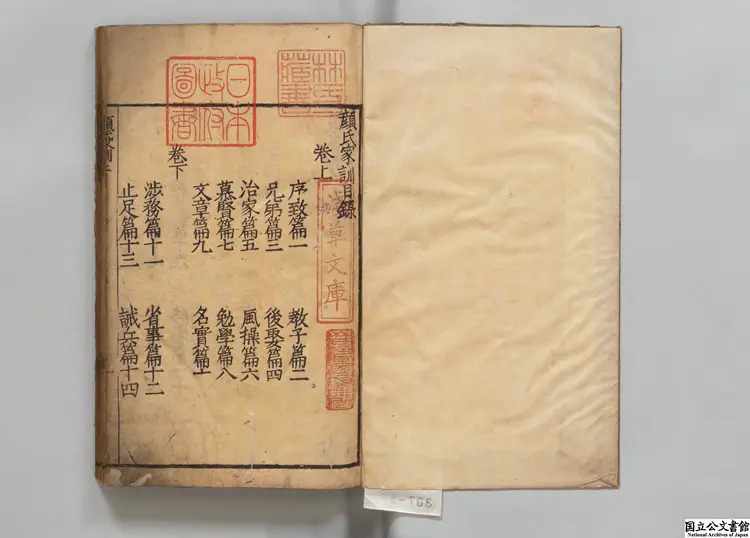 顔氏家訓目錄
卷上
序致篇一 教子篇二
兄弟篇三 後娶篇四
治家篇五 風操篇六
慕賢篇七 勉學篇八
文章篇九 名實篇十
卷下
涉務篇十一 省事篇十二
止足篇十三 誡兵篇十四
林氏藏書
日本政府圖書
文庫
國立公文書館
National Archives of Japan